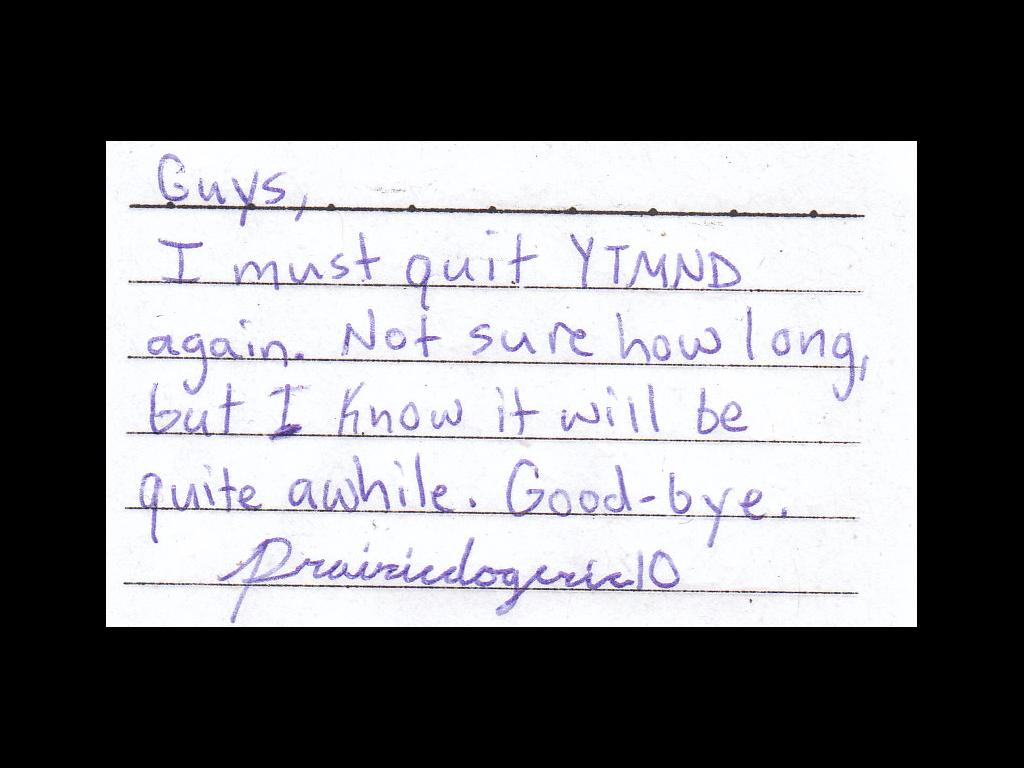 Guys,
I must quit YTMND
again. Not sure how long,
but I know it will be
quite awhile. Good-bye.
Prairiedogeric10